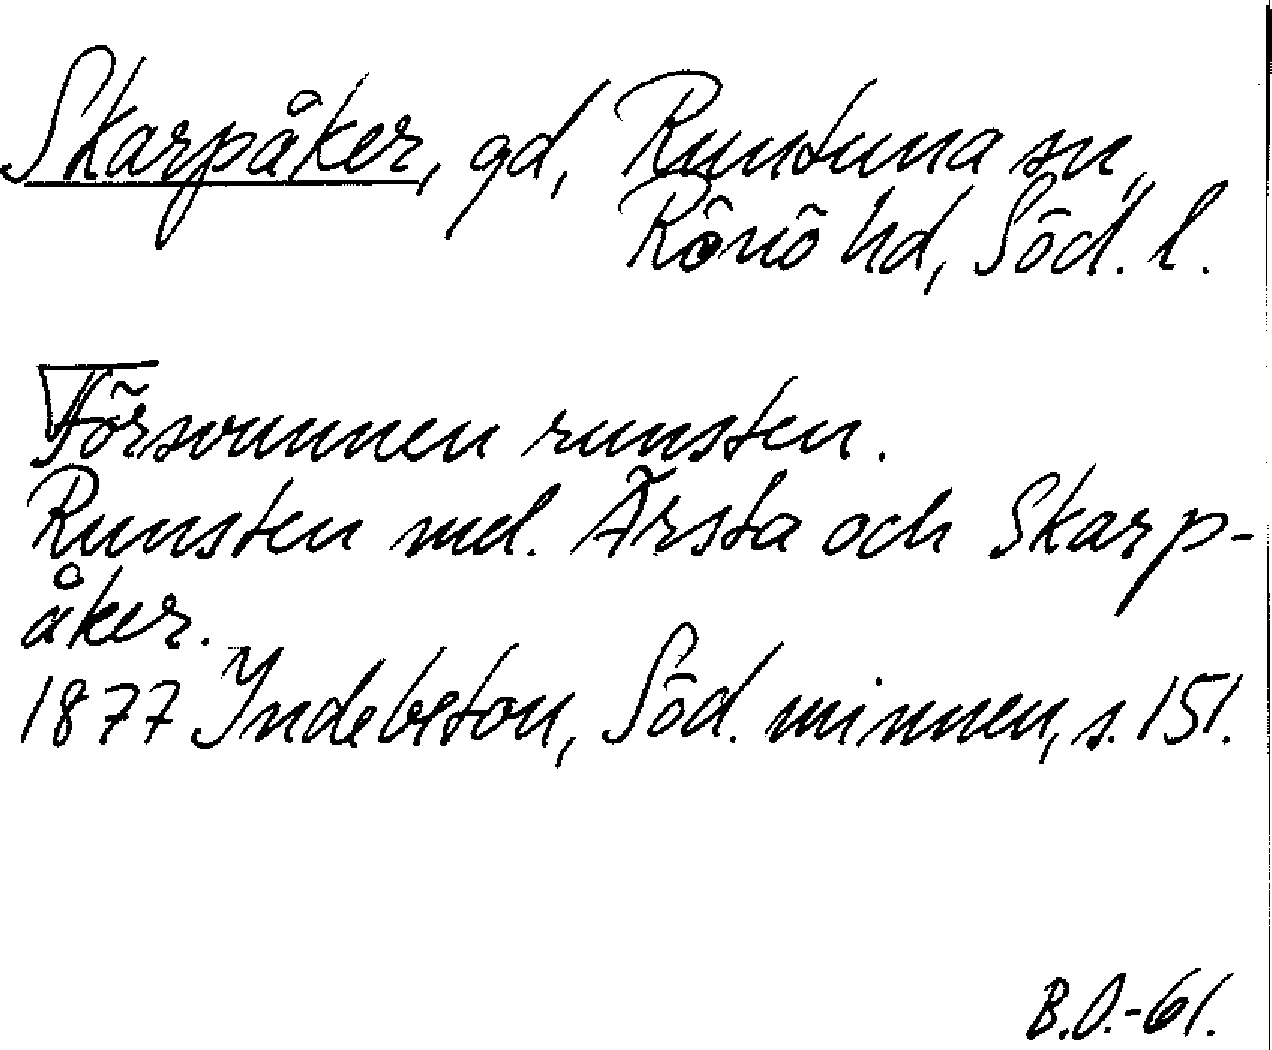 Skarpåker, gd, Runtuna sn,
Rönö hd, Söd. l.
Försvunnen runsten.
Runsten mel. Ärsta och Skarp-
åker.
1877 Indebetou, Söd. minnen, s. 151.
B.O.-61.